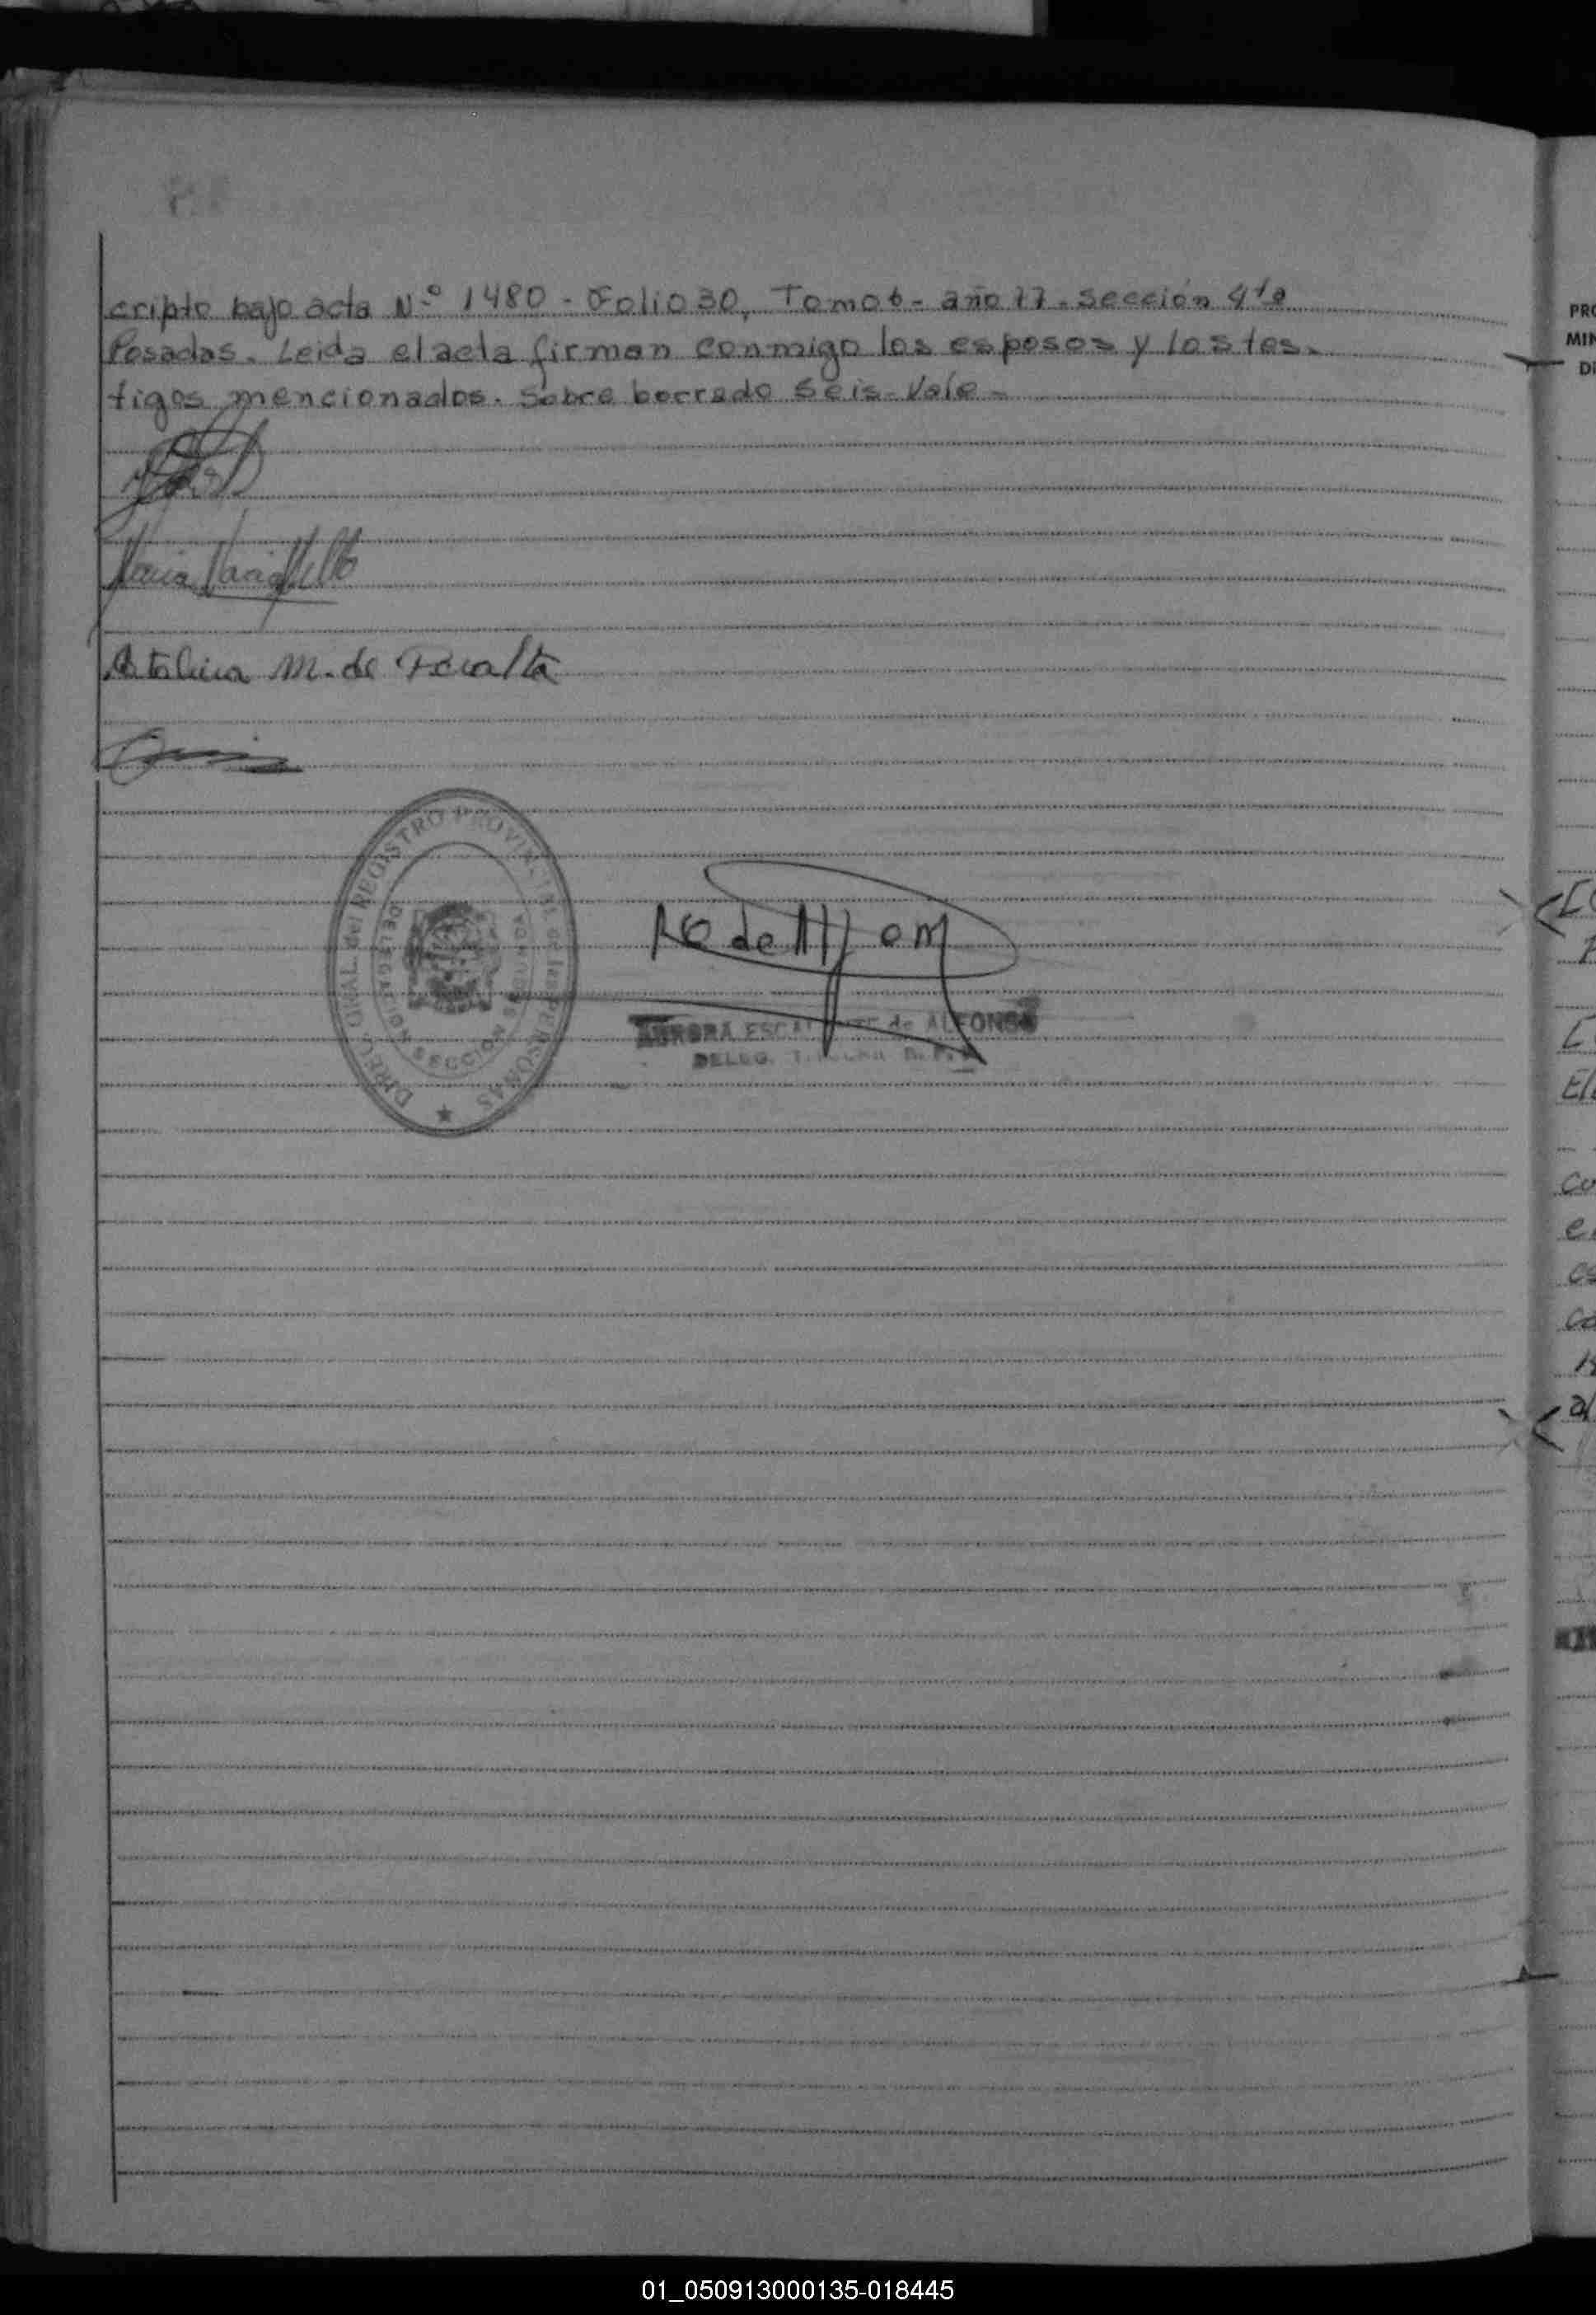 cripto bajo acta N.º 1480 - Folio 30, Tomo 6 - año 77. Sección 4ta
Posadas. Leida el acta firman conmigo los esposos y los tes.
tigos mencionados. Sobre borrado Seis - Vale -
M. de Peralta
DIREC. GRAL. del REGISTRO PROVINCIAL de las PERSONAS
DELEGACION SECCION
AURORA ESCALANTE de ALFONSO
DELEG.
PRO
MIN
DI
01_050913000135-018445